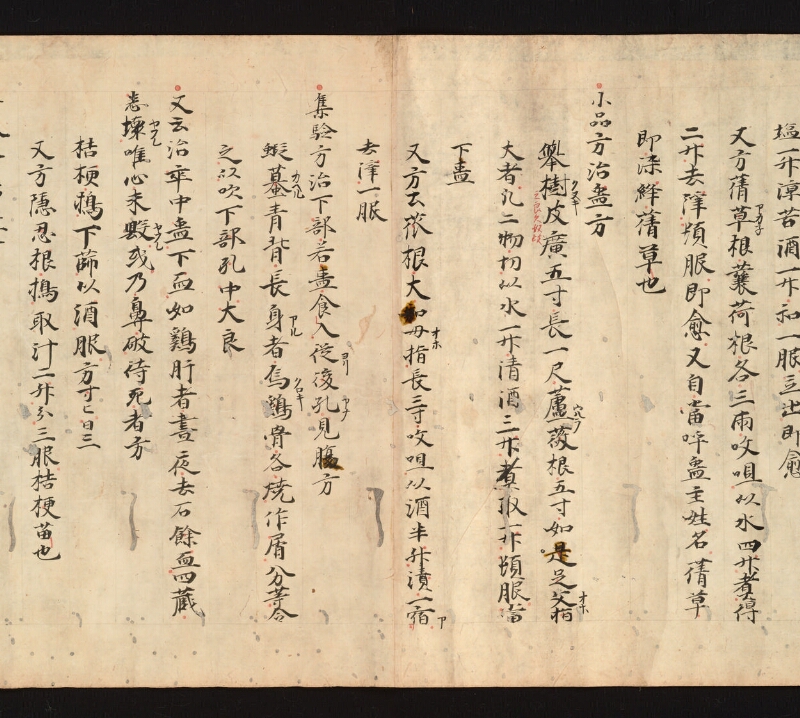 塩一升凉苦酒一升和一服立出即愈
又方蒨草根蘘荷根各三兩㕮咀以水四升煮得
二升去滓頓服即愈又自當呼蛊主姓名蒨草
即染絳蒨草也
小品方治蛊方
欅樹皮廣五寸長一尺蘆荻根五寸如是足父指
大者凡二物切以水一升清酒三升煮取一升頓服當
下蛊
又方去 根大如母指長三寸㕮咀以酒半升漬一宿
去滓一服
集驗方治下部若蛊食入從後孔見腹方
蝦蟇青背長身者烏鷄骨各燒作屑分等合
之以吹下部孔中大良
又云治卒中蛊下血如鷄肝者晝夜去石餘血四藏
悉壞唯心未毀或乃鼻破待死者方
桔梗擣下篩以酒服方寸匕日三
又方隱忍根擣取汁二升分三服桔梗苗也